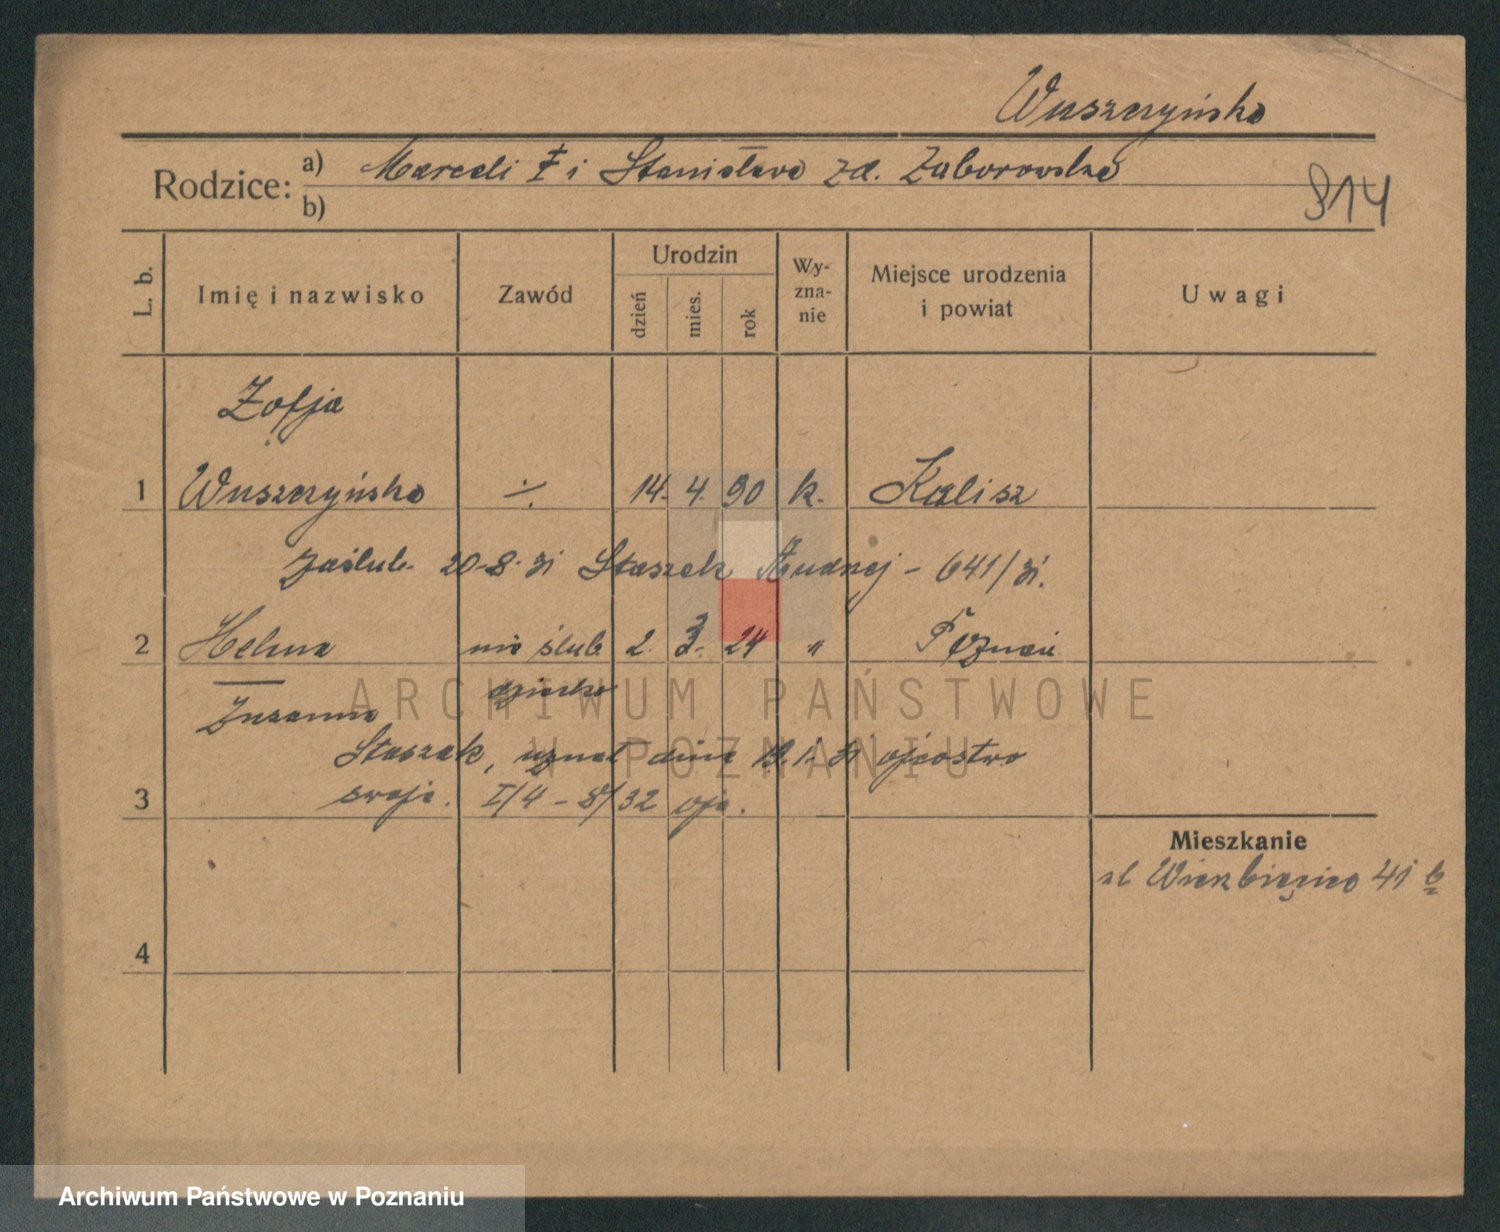 Wuszczyńska
Rodzice: a) Marceli ‡ i Stanisława zd. Zaborowska
b)
814
L. b.
Imię i nazwisko
Zawód
Urodzin
dzień
mies.
rok
Wy-
zna-
nie
Miejsce urodzenia
i powiat
Uwagi
Zofja
1 Wuszczyńska ·/. 14. 4. 90 k. Kalisz
zaślub. 20-8-31 Staszak Andrzej - 641/31.
2 Helena nie ślub. 2. 3. 24 " Poznań
Zuzanna dziecko
Staszak, uznał dnia 13.1.31 ojcostwo
3 swoje. I/4 - 8/32
Mieszkanie
ul Wierzbięcice 41 b
4
ARCHIWUM PAŃSTWOWE
W POZNANIU
Archiwum Państwowe w Poznaniu